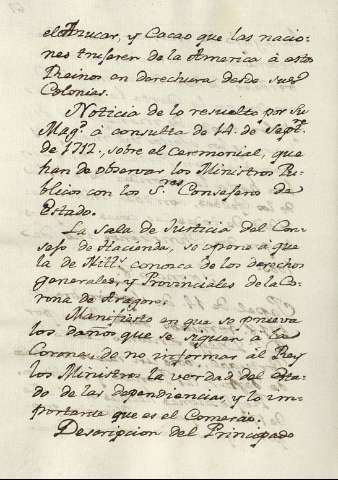 el Azucar, y Cacao que las nacio-
nes trugeren de la America á estos
Reinos en derechura desde sus
Colonias.
Noticia de lo resuelto por Su
Mag.ᵈ á consulta de 14. de Sept.ʳᵉ
de 1712., sobre el Ceremonial, que
han de observar los Ministros Pu-
blicos con los S.ʳᵉˢ Consejero de
Estado.
La Sala de Justicia del Con-
sejo de Hacienda, se opone á que
la de Mill.ˢ conosca de los derechos
generales, y Provinciales de la Co-
rona de Aragon.
Manifiesto en que se prueva
los daños que se siguen á la
Corona, de no informar al Rey
los Ministros la verdad del Esta-
do de las dependiencias, y lo im-
portante que es el Comercio.
Descripcion del Principado